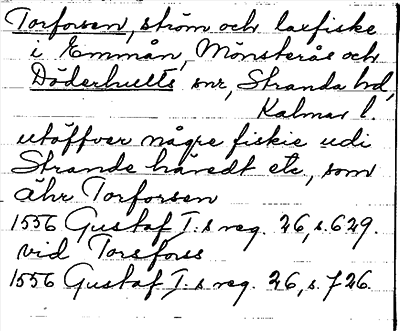 Torforsen, ström och laxfiske
i Emmån, Mönsterås och
Döderhults snr, Stranda hd,
Kalmar l.
utöffver någre fiskie udi
Strande häredt etc, som
ähr Torforsen
1556 Gustaf I.s reg. 26, s. 629.
vid Torsforss
1556 Gustaf I.s reg. 26, s. 726.